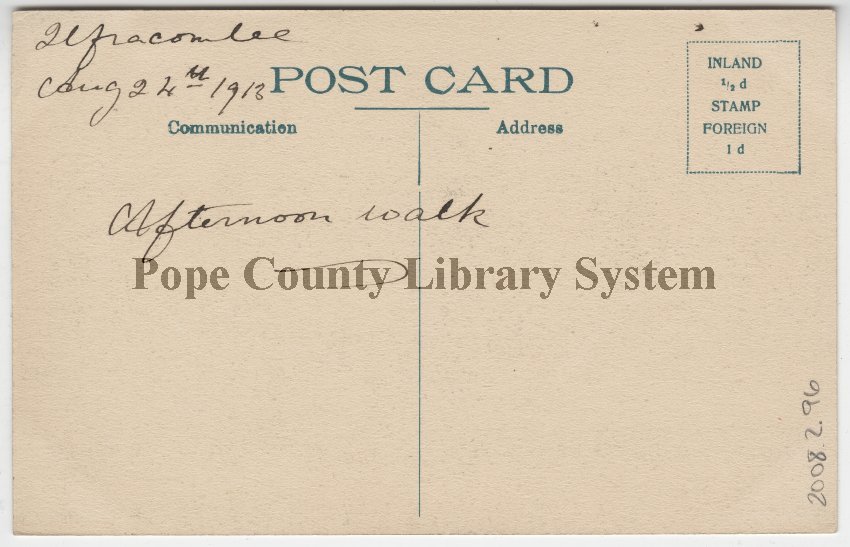 Ilfracombe
Aug 24th 1913
POST CARD
Communication
Address
INLAND
1/2 d
STAMP
FOREIGN
1 d
Afternoon walk
Pope County Library System
2008.2.96